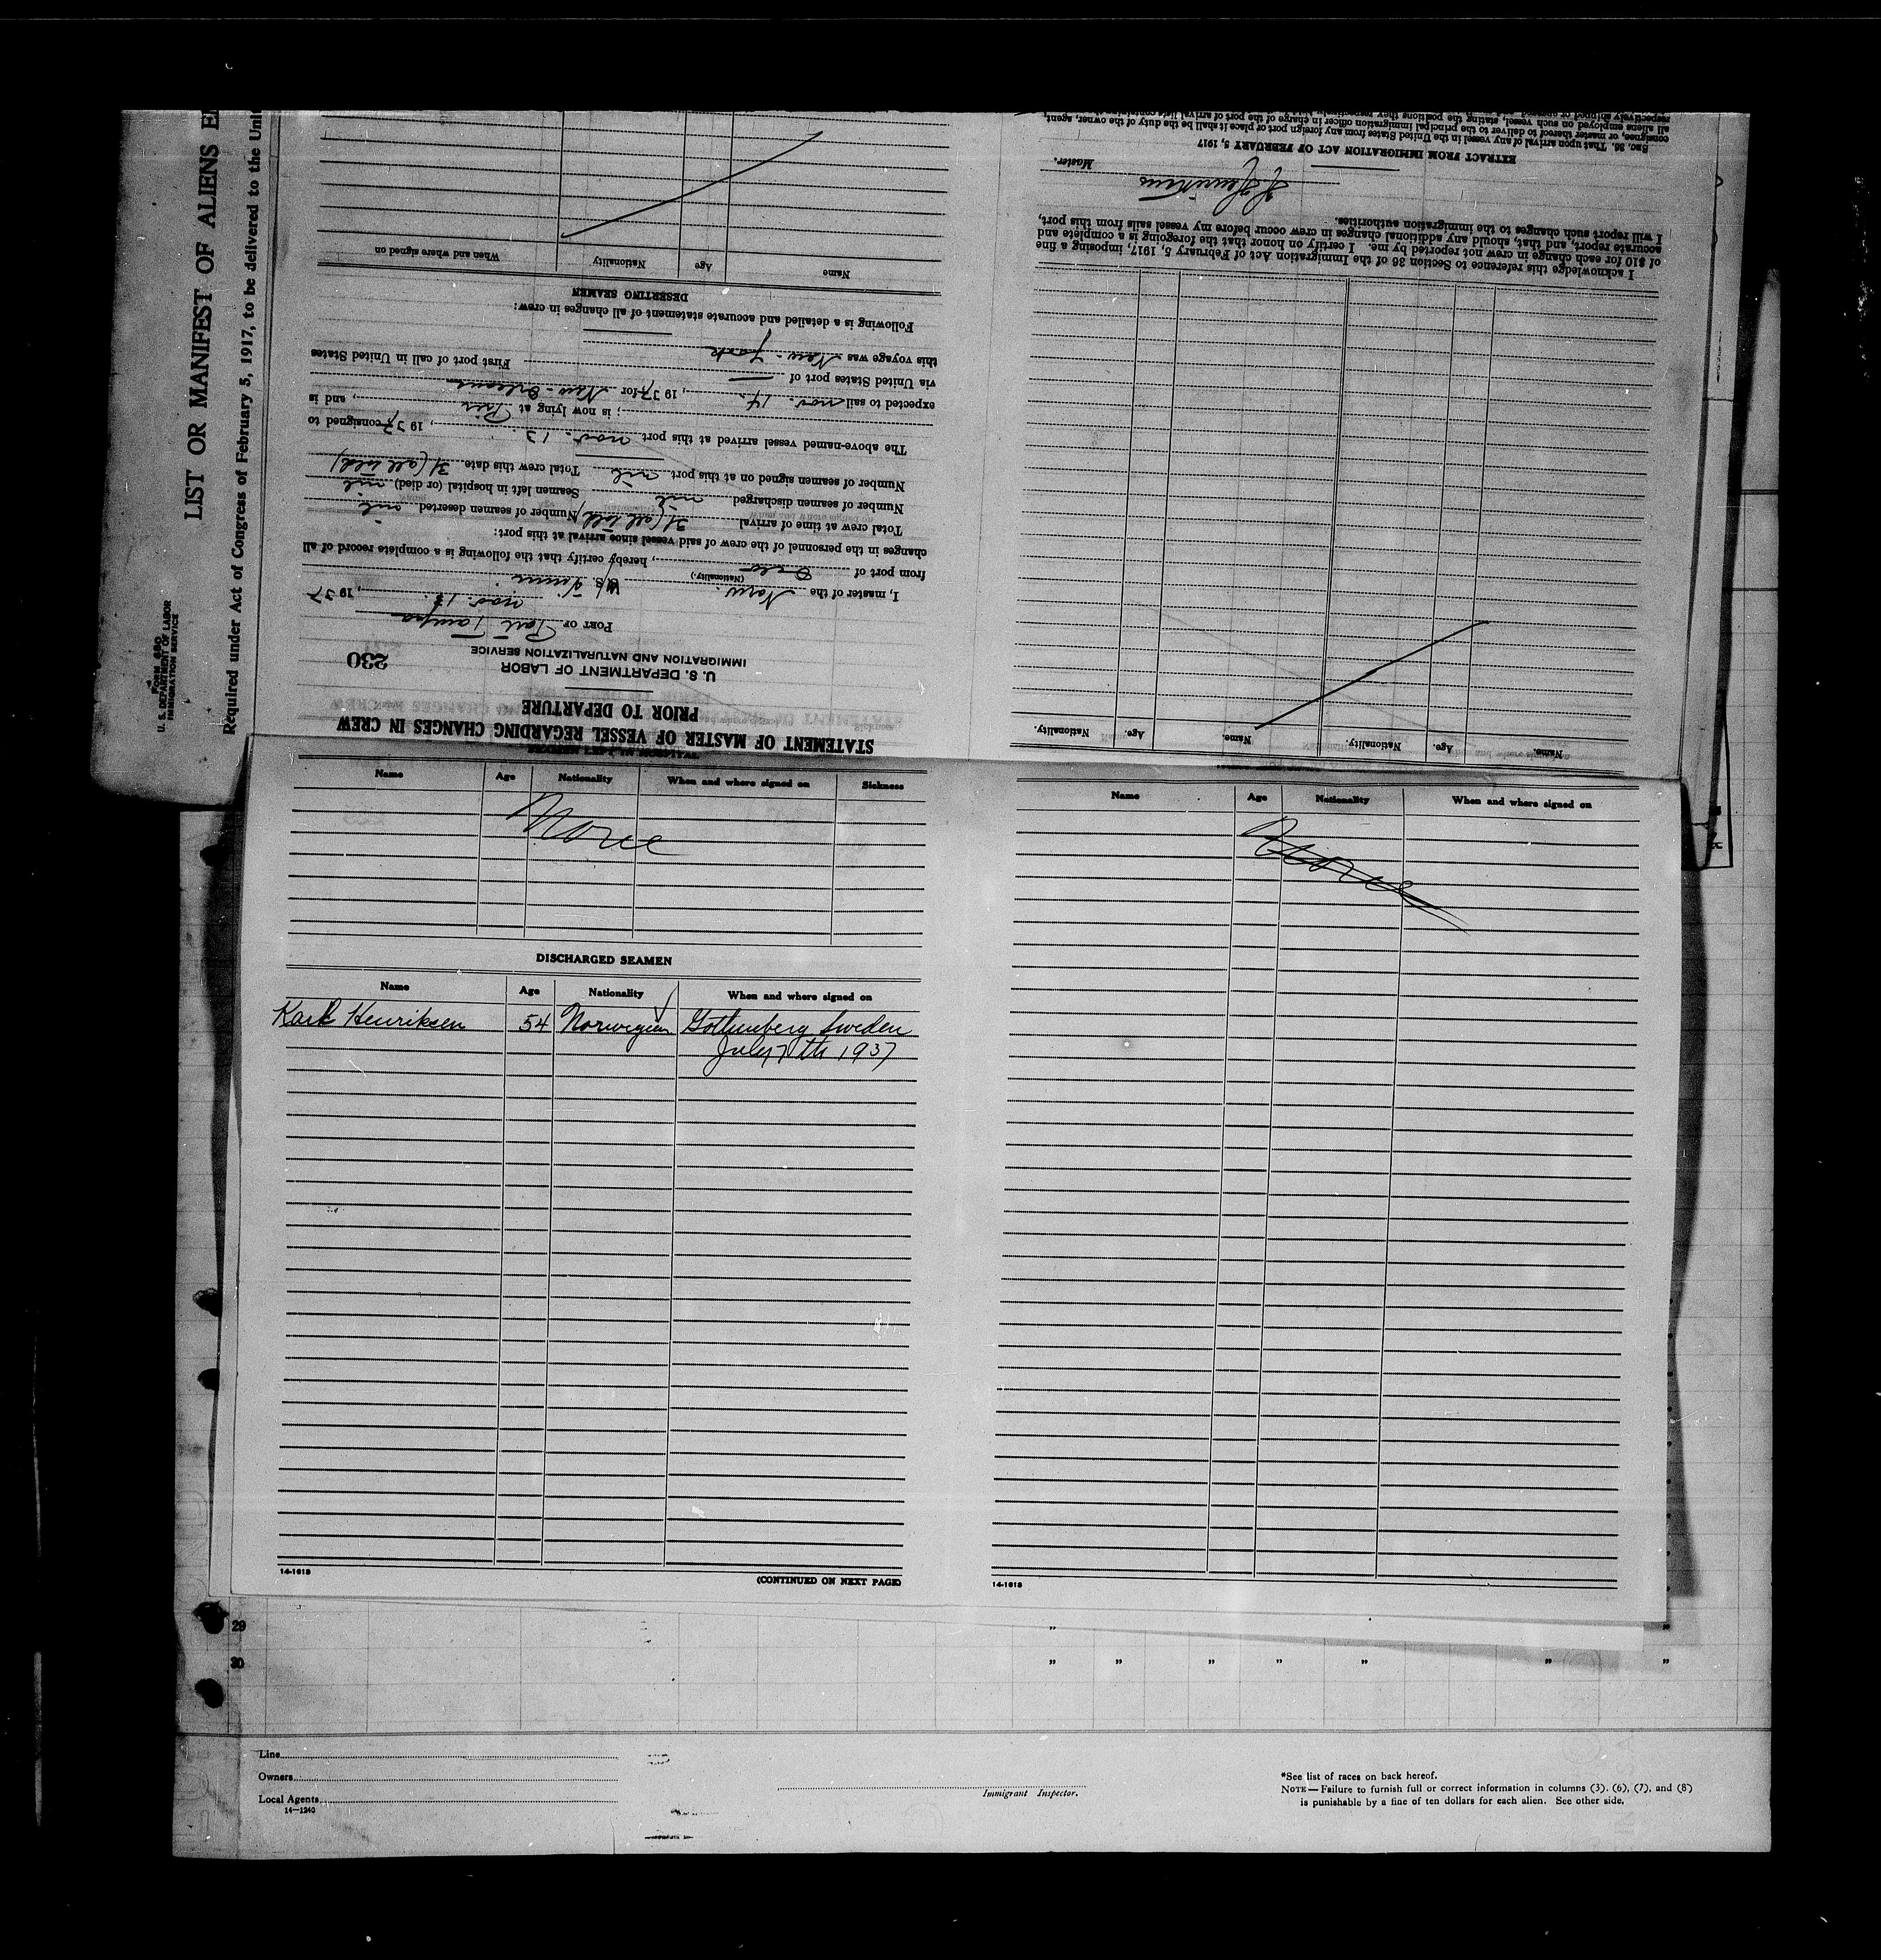 LIST OR MANIFEST OF ALIENS
Required under Act of Congress of February 5, 1917, to be delivered to the
FORM 680
U. S. DEPARTMENT OF LABOR
IMMIGRATION SERVICE
STATEMENT OF MASTER OF VESSEL REGARDING CHANGES IN CREW
PRIOR TO DEPARTURE
U. S. DEPARTMENT OF LABOR
IMMIGRATION AND NATURALIZATION SERVICE
230
PORT OF Port Tampa
Nov. 13, 1937
I, master of the Norw. M/S.
(Nationality.)
from port of Oslo, hereby certify that the following is a complete record of all
changes in the personnel of the crew of said vessel since arrival at this port:
Total crew at time of arrival 31 (all told) Number of seamen deserted nil
Number of seamen discharged nil Seamen left in hospital (or died) nil
Number of seamen signed on at this port nil Total crew this date 31 (all told)
The above-named vessel arrived at this port Nov. 13, 1937 consigned to
; is now lying at, and is
expected to sail Nov. 14, 1937 for New-Orleans
via United States port of —
First port of call in United States
this voyage was New-York
Following is a detailed and accurate statement of all changes in crew:
DESERTING SEAMEN
Name Age Nationality When and where signed on
Name. Age. Nationality. Name. Age. Nationality.
I acknowledge this reference to Section 36 of the Immigration Act of February 5, 1917, imposing a fine
of $10 for each change in crew not reported by me. I certify on honor that the foregoing is a complete and
accurate report, and that, should any additional changes in crew occur before my vessel sails from this port,
I will report such changes to the immigration authorities.
Master.
EXTRACT FROM IMMIGRATION ACT OF FEBRUARY 5, 1917
SEC. 36. That upon arrival of any vessel in the United States from any foreign port or place it shall be the duty of the owner, agent,
consignee, or master thereof to deliver to the principal immigration officer in charge of the port of arrival lists
all aliens employed on such vessel, stating the positions they respectively
Name Age Nationality When and where signed on Sickness
None
DISCHARGED SEAMEN
Name Age Nationality When and where signed on
Karl Henriksen 54 Norwegian Gothenberg Sweden
July 7th 1937
14-1618
(CONTINUED ON NEXT PAGE)
Name Age Nationality When and where signed on
None
14-1618
29 "
30 " " " " " " "
Line
Owners
Local Agents
14-1240
Immigrant Inspector.
*See list of races on back hereof.
NOTE—Failure to furnish full or correct information in columns (3), (6), (7), and (8)
is punishable by a fine of ten dollars for each alien. See other side.